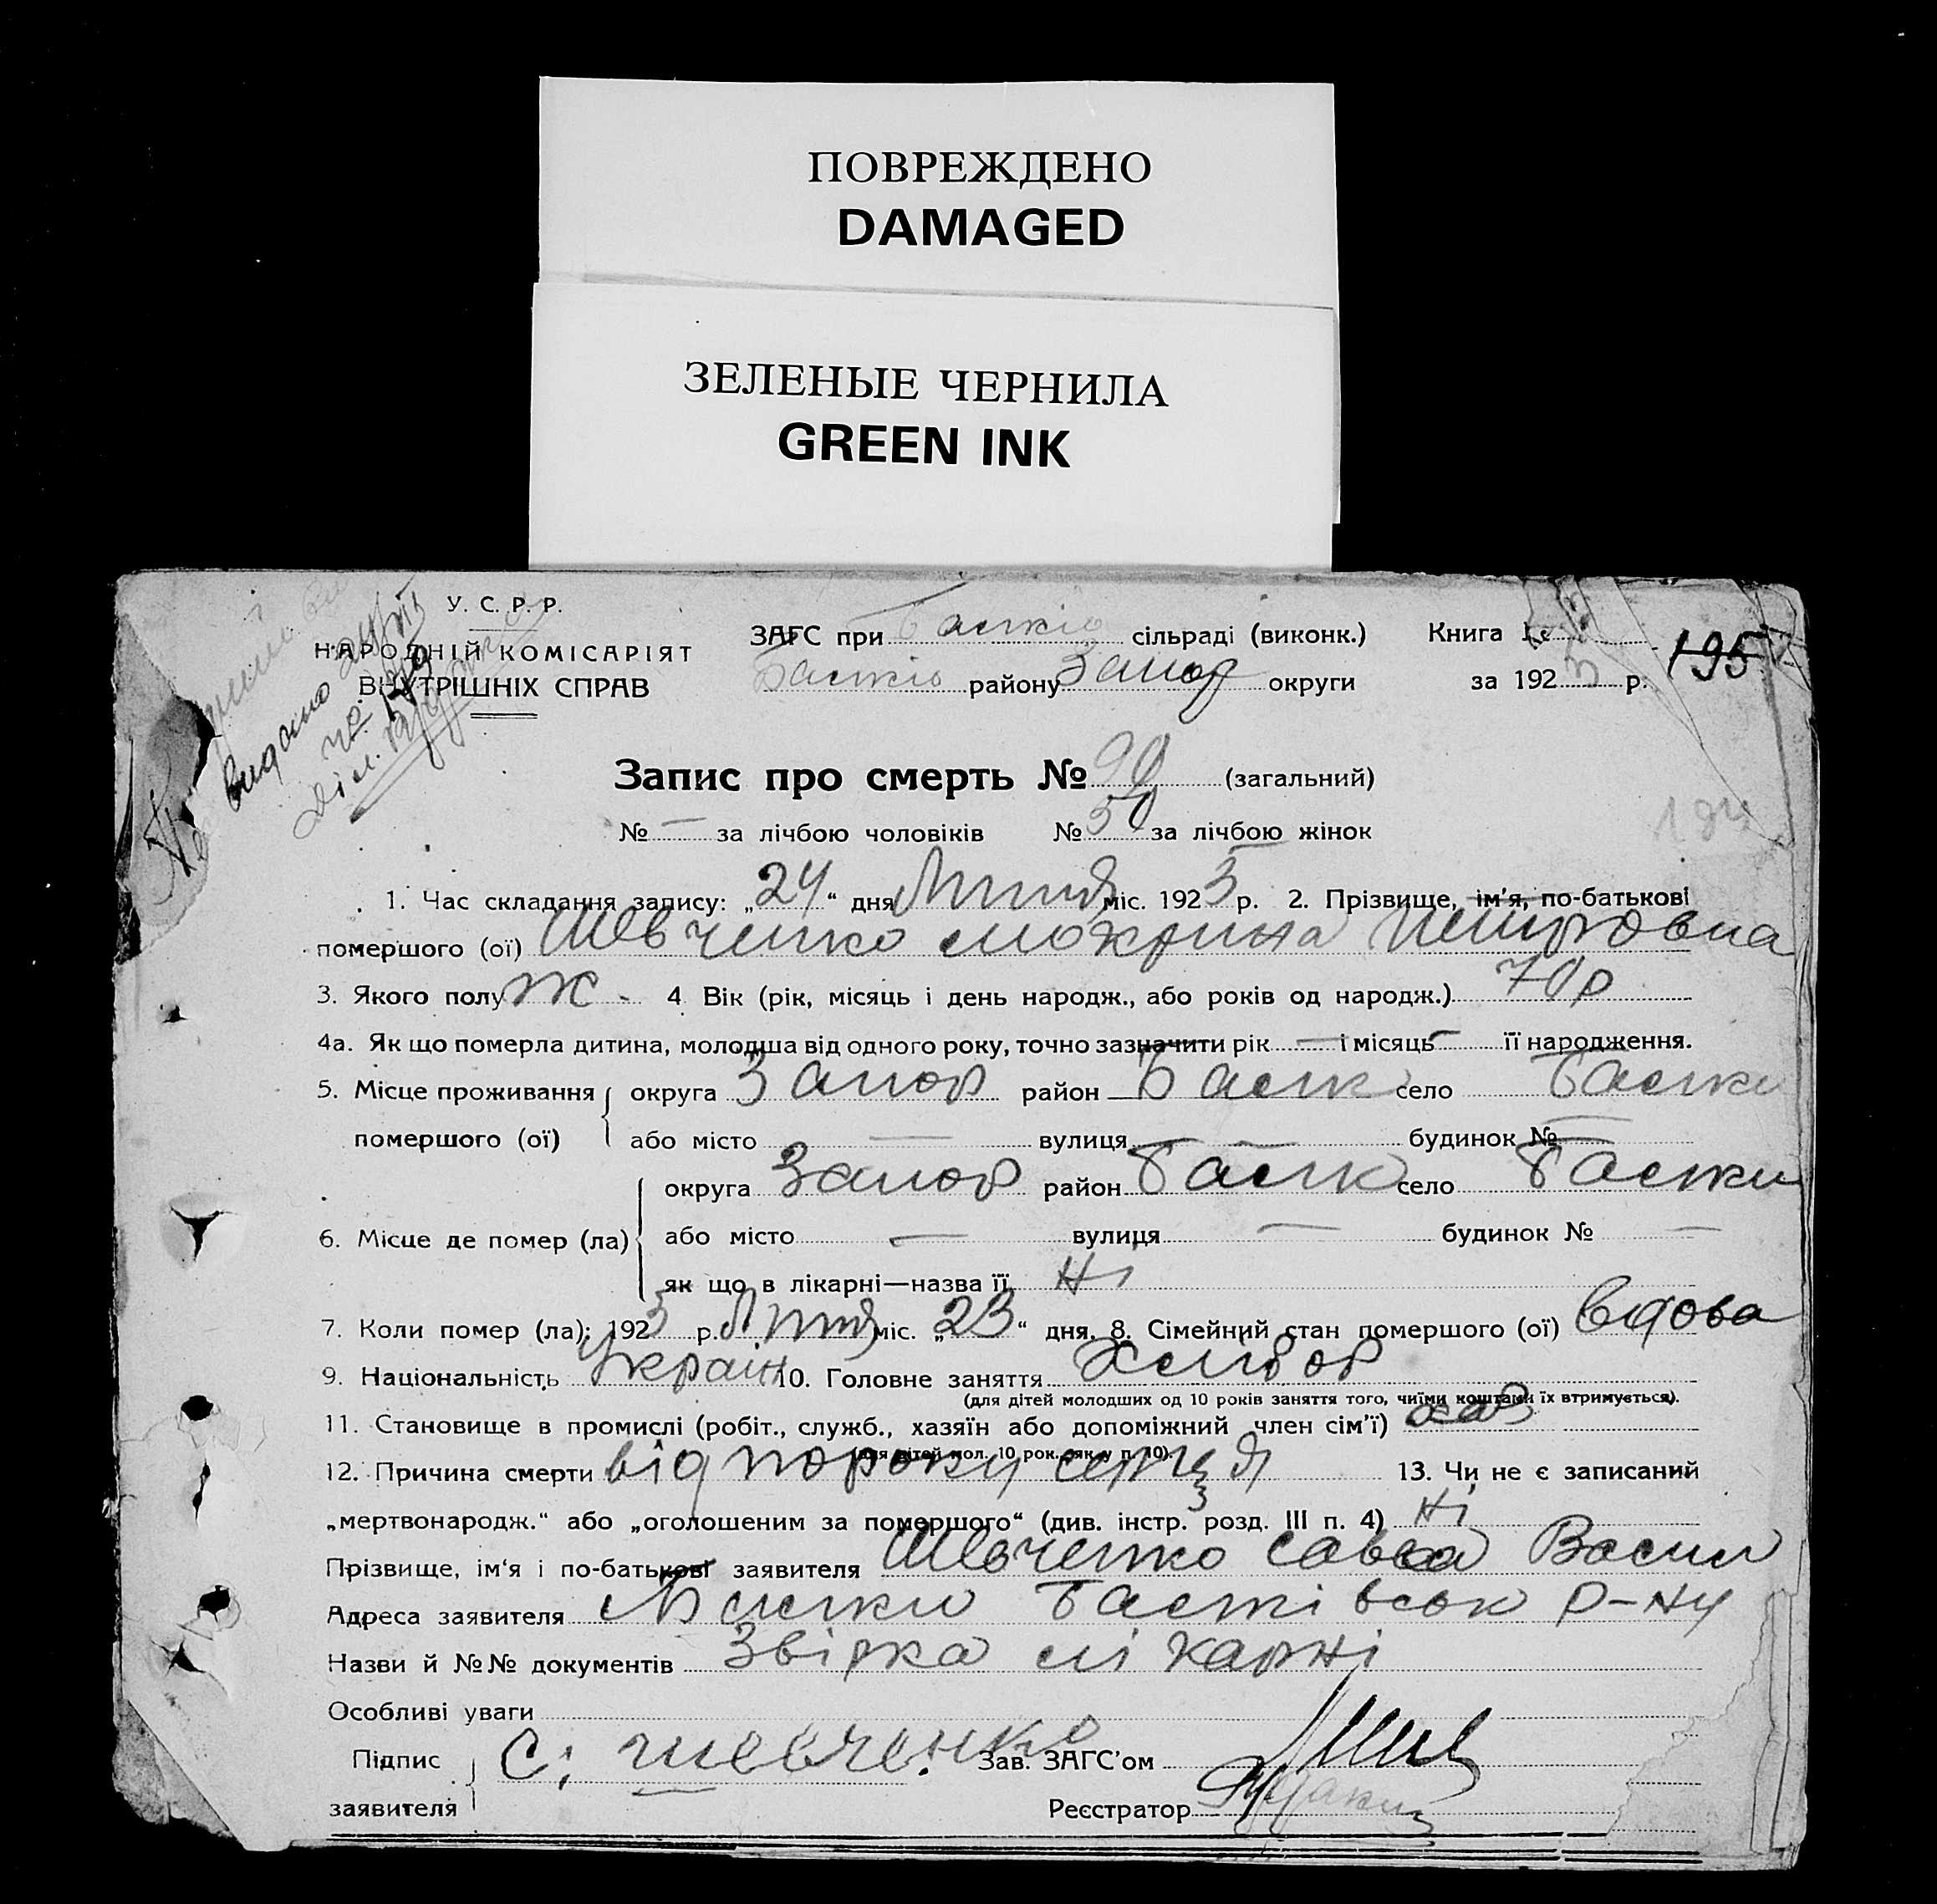 ПОВРЕЖДЕНО
DAMAGED
ЗЕЛЕНЫЕ ЧЕРНИЛА
GREEN INK
У. С. Р. Р.
НАРОДНІЙ КОМІСАРІЯТ
ВНУТРІШНІХ СПРАВ
видано
ЗАГС при сільраді (виконк.) Книга №
району Запор округи за 192 р. 195
Запис про смерть № 90 (загальний)
№ — за лічбою чоловіків № 50 за лічбою жінок
1. Час складання запису: „24“ дня Липня міс. 1925 р. 2. Прізвище, ім'я, по-батькові
помершого (ої) Шевченко Мокрина Петровна
3. Якого полу ж. 4 Вік (рік, місяць і день народж., або років од народж.) 70 р
4а. Як що померла дитина, молодша від одного року, точно зазначити рік — і місяць — її народження.
5. Місце проживання округа Запор район село
помершого (ої) або місто — вулиця — будинок № —
округа Запор район село
6. Місце де помер (ла) або місто — вулиця — будинок № —
як що в лікарні—назва її Ні
7. Коли помер (ла): 1925 р. Липня міс. „23“ дня. 8. Сімейний стан помершого (ої) вдова
9. Національність Україн 10. Головне заняття Хлібор
(для дітей молодших од 10 років заняття того, чиїми коштами їх втримується).
11. Становище в промислі (робіт., служб., хазяїн або допоміжний член сім'ї) хаз
(для дітей мол. 10 рок. як у п. 10).
12. Причина смерти від пороку серця 13. Чи не є записаний
„мертвонародж.“ або „оголошеним за помершого“ (див. інстр. розд. III п. 4) Ні
Прізвище, ім'я і по-батькові заявителя Шевченко Савка Васил
Адреса заявителя р-ну
Назви й №№ документів лікарні
Особливі уваги
Підпис С. Шевченко Зав. ЗАГС'ом
заявителя Реєстратор